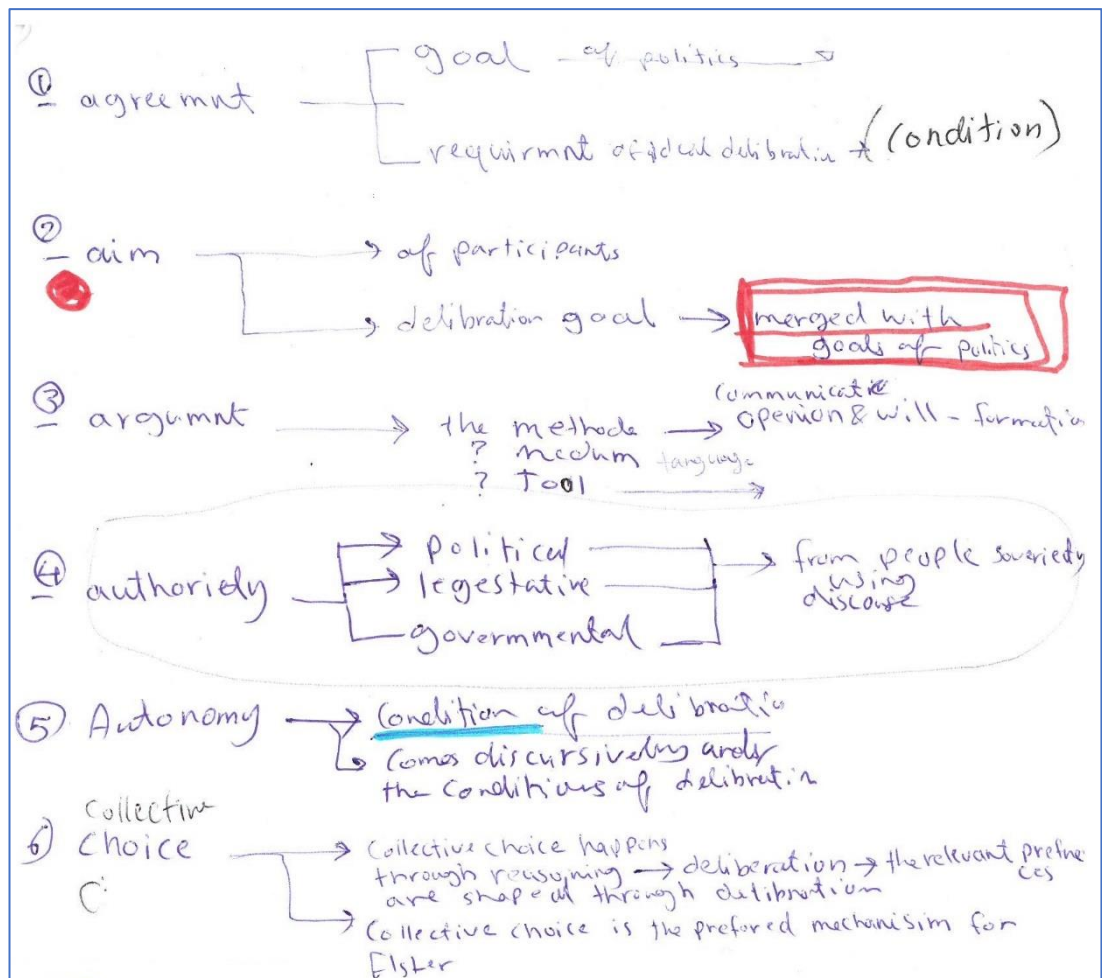 ① agreemnt
goal of politics
requirmnt of ideal delibratin (condition)
② aim
of participants
delibration goal → merged with
goals of politics
③ argumnt
the methode → communicative
openion & will - formatin
? medum language
? Tool
④ authoriedy
political
legestative
governmental
from people soveriedy
using
discouse
⑤ Autonomy
Condition of delibratio
Comes discursiveluy under
the conditions of delibratin
Collective
6) Choice
C
Collective choice happens
through reasoning → deliberation → the relevant prefne
ces
are shaped through delibration
Collective choice is the prefored mechanisim for
Elster